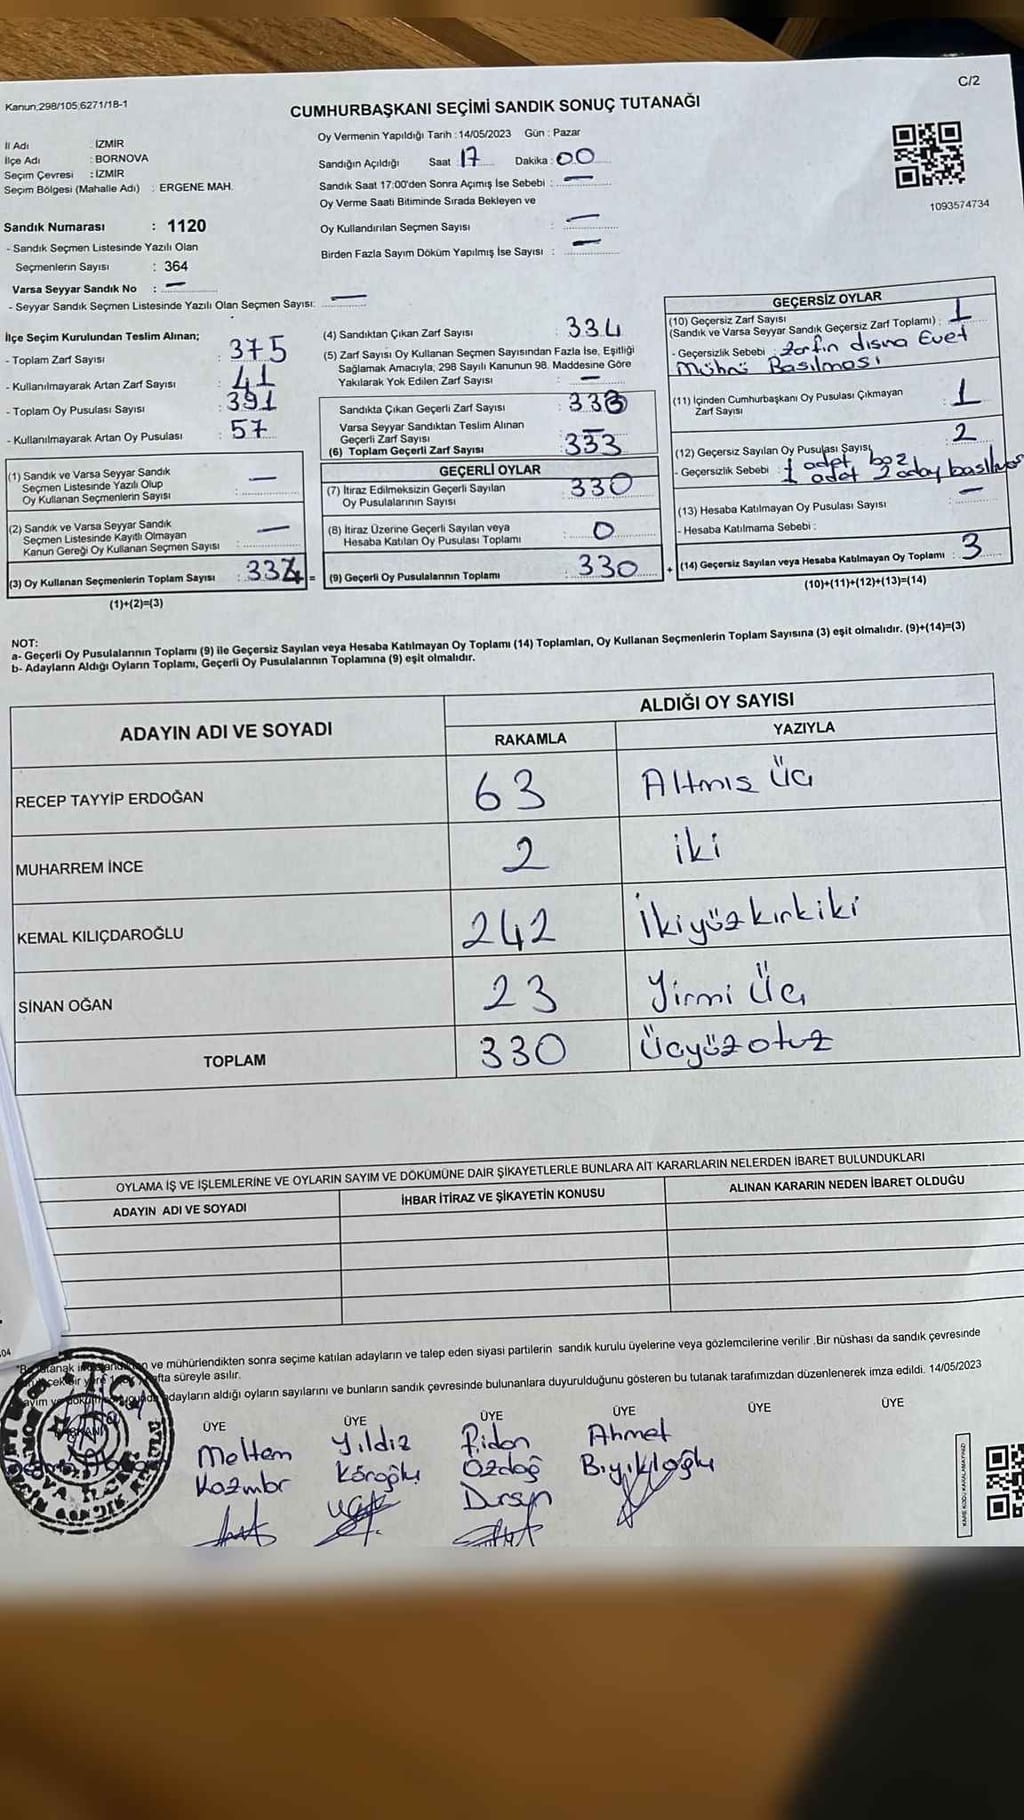 Kanun;298/105,6271/18-1
C/2
CUMHURBAŞKANI SEÇİMİ SANDIK SONUÇ TUTANAĞI
İl Adı : İZMİR
İlçe Adı : BORNOVA
Seçim Çevresi : İZMİR
Seçim Bölgesi (Mahalle Adı) : ERGENE MAH.
Sandık Numarası : 1120
- Sandık Seçmen Listesinde Yazılı Olan
Seçmenlerin Sayısı : 364
Varsa Seyyar Sandık No : —
- Seyyar Sandık Seçmen Listesinde Yazılı Olan Seçmen Sayısı: —
Oy Vermenin Yapıldığı Tarih : 14/05/2023 Gün : Pazar
Sandığın Açıldığı Saat 17 Dakika : 00
Sandık Saat 17:00'den Sonra Açımış İse Sebebi : —
Oy Verme Saati Bitiminde Sırada Bekleyen ve
Oy Kullandırılan Seçmen Sayısı : —
Birden Fazla Sayım Döküm Yapılmış İse Sayısı : —
1093574734
İlçe Seçim Kurulundan Teslim Alınan;
- Toplam Zarf Sayısı : 375
- Kullanılmayarak Artan Zarf Sayısı : 41
- Toplam Oy Pusulası Sayısı : 391
- Kullanılmayarak Artan Oy Pusulası : 57
(1) Sandık ve Varsa Seyyar Sandık
Seçmen Listesinde Yazılı Olup
Oy Kullanan Seçmenlerin Sayısı : —
(2) Sandık ve Varsa Seyyar Sandık
Seçmen Listesinde Kayıtlı Olmayan
Kanun Gereği Oy Kullanan Seçmen Sayısı : —
(3) Oy Kullanan Seçmenlerin Toplam Sayısı : 334 =
(1)+(2)=(3)
(4) Sandıktan Çıkan Zarf Sayısı : 334
(5) Zarf Sayısı Oy Kullanan Seçmen Sayısından Fazla İse, Eşitliği
Sağlamak Amacıyla, 298 Sayılı Kanunun 98. Maddesine Göre
Yakılarak Yok Edilen Zarf Sayısı : —
Sandıkta Çıkan Geçerli Zarf Sayısı : 333
Varsa Seyyar Sandıktan Teslim Alınan
Geçerli Zarf Sayısı : —
(6) Toplam Geçerli Zarf Sayısı : 333
GEÇERLİ OYLAR
(7) İtiraz Edilmeksizin Geçerli Sayılan
Oy Pusulalarının Sayısı : 330
(8) İtiraz Üzerine Geçerli Sayılan veya
Hesaba Katılan Oy Pusulası Toplamı : 0
(9) Geçerli Oy Pusulalarının Toplamı : 330 +
GEÇERSİZ OYLAR
(10) Geçersiz Zarf Sayısı
(Sandık ve Varsa Seyyar Sandık Geçersiz Zarf Toplamı) : 1
- Geçersizlik Sebebi : Zarfın dısına Evet
Mührü Basılması
(11) İçinden Cumhurbaşkanı Oy Pusulası Çıkmayan
Zarf Sayısı : 1
(12) Geçersiz Sayılan Oy Pusulası Sayısı : 2
- Geçersizlik Sebebi : 1 adet boz
1 adet 2 aday
(13) Hesaba Katılmayan Oy Pusulası Sayısı : —
- Hesaba Katılmama Sebebi :
(14) Geçersiz Sayılan veya Hesaba Katılmayan Oy Toplamı : 3
(10)+(11)+(12)+(13)=(14)
NOT:
a- Geçerli Oy Pusulalarının Toplamı (9) ile Geçersiz Sayılan veya Hesaba Katılmayan Oy Toplamı (14) Toplamları, Oy Kullanan Seçmenlerin Toplam Sayısına (3) eşit olmalıdır. (9)+(14)=(3)
b- Adayların Aldığı Oyların Toplamı, Geçerli Oy Pusulalarının Toplamına (9) eşit olmalıdır.
ADAYIN ADI VE SOYADI
ALDIĞI OY SAYISI
RAKAMLA YAZIYLA
RECEP TAYYİP ERDOĞAN 63 Altmıs Üç
MUHARREM İNCE 2 iki
KEMAL KILIÇDAROĞLU 242 İkiyüzkırkiki
SİNAN OĞAN 23 Yirmi Üç
TOPLAM 330 Üçyüzotuz
OYLAMA İŞ VE İŞLEMLERİNE VE OYLARIN SAYIM VE DÖKÜMÜNE DAİR ŞİKAYETLERLE BUNLARA AİT KARARLARIN NELERDEN İBARET BULUNDUKLARI
ADAYIN ADI VE SOYADI İHBAR İTİRAZ VE ŞİKAYETİN KONUSU ALINAN KARARIN NEDEN İBARET OLDUĞU
ve mühürlendikten sonra seçime katılan adayların ve talep eden siyasi partilerin sandık kurulu üyelerine veya gözlemcilerine verilir .Bir nüshası da sandık çevresinde
süreyle asılır.
adayların aldığı oyların sayılarını ve bunların sandık çevresinde bulunanlara duyurulduğunu gösteren bu tutanak tarafımızdan düzenlenerek imza edildi. 14/05/2023
ÜYE ÜYE ÜYE ÜYE ÜYE ÜYE
Meltem Yıldız Ridan Ahmet
Kazmbr Köroğlu Özdağ Bıyıklıoğlu
Dursun